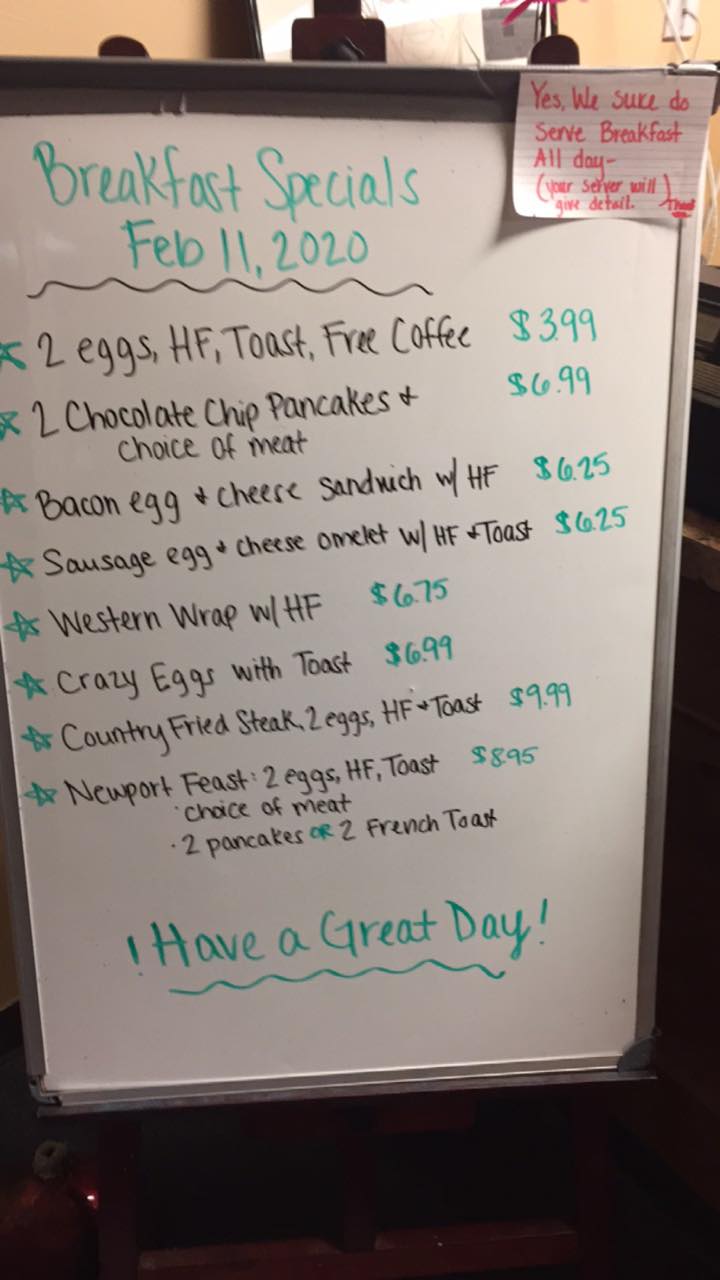 Yes, We sure do
Serve Breakfast
All day-
(your server will)
give detail.
Breakfast Specials
Feb 11, 2020
2 eggs, HF, Toast, Free Coffee $3.99
2 Chocolate Chip Pancakes + $6.99
choice of meat
Bacon egg + cheese sandwich w/ HF $6.25
Sausage egg + cheese omelet w/ HF + Toast $6.25
Western Wrap w/ HF $6.75
Crazy Eggs with Toast $6.99
Country Fried Steak, 2 eggs, HF + Toast $9.99
Newport Feast: 2 eggs, HF, Toast $8.95
· choice of meat
· 2 pancakes OR 2 French Toast
! Have a Great Day!